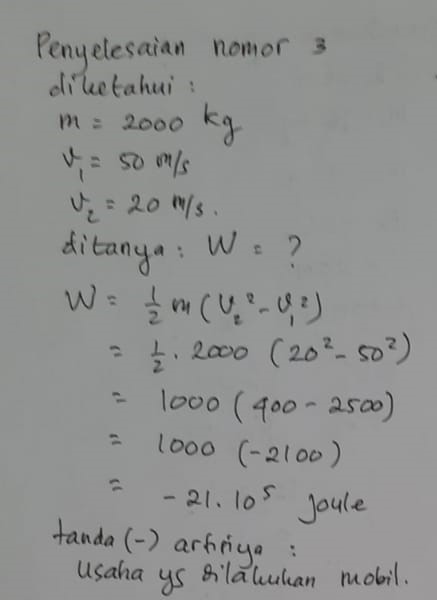 Penyelesaian nomor 3
diketahui :
m = 2000 kg
v₁ = 50 m/s
v₂ = 20 m/s.
ditanya : W = ?
W = ½ m (v₂² - v₁²)
= ½ . 2000 (20² - 50²)
= 1000 (400 - 2500)
= 1000 (-2100)
= -21.10⁵ joule
tanda (-) artinya :
usaha yg dilakukan mobil.